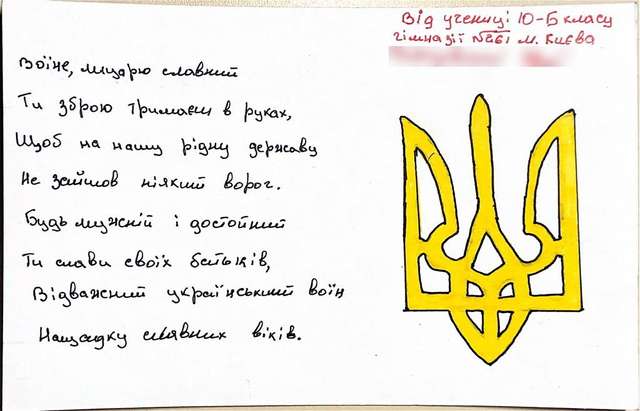 Від учениці 10-Б класу
гімназії №261 м. Києва
Воїне, лицарю славний
Ти зброю тримаєш в руках,
Щоб на нашу рідну державу
Не зайшов ніякий ворог.
Будь мужній і достойний
Ти слави своїх батьків,
Відважний український воїн
Нащадку славних віків.